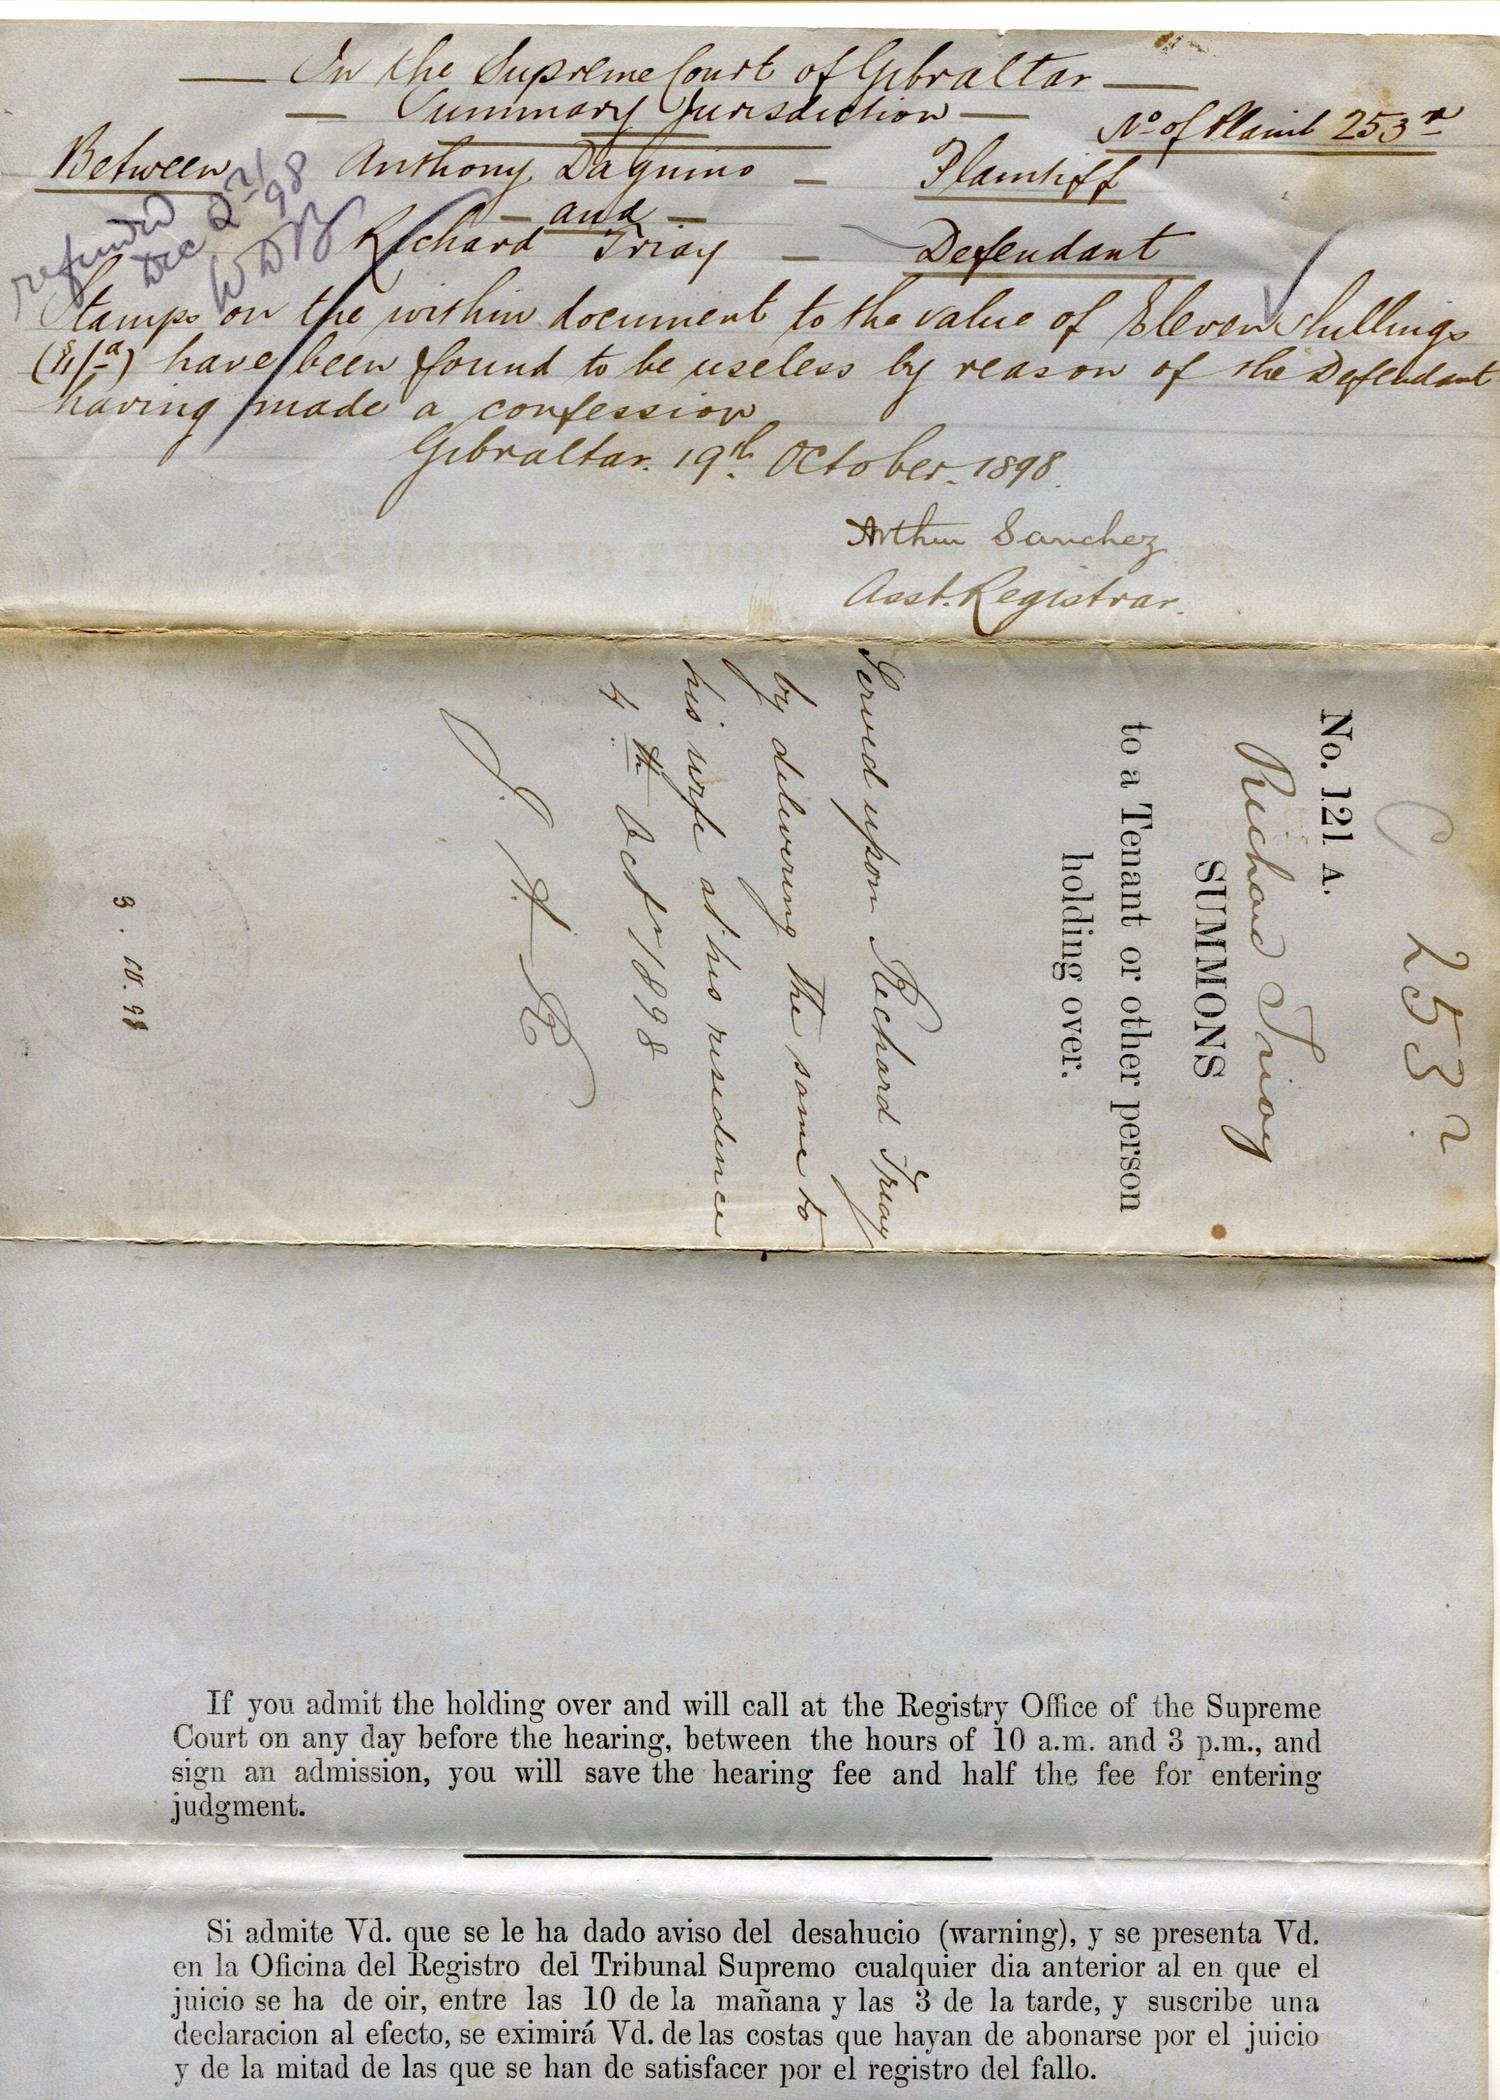 In the Supreme Court of Gibraltar
Summary Jurisdiction
No of Plaint 253
Between Anthony Daguino Plaintiff
and
Richard Triay Defendant
refunded
Dec 2nd/98
WDB
Stamps on the within document to the value of Eleven Shillings
have been found to be useless by reason of the Defendant
having made a confession
Gibraltar. 19th October. 1898.
Arthur Sanchez
Asst. Registrar.
C 253
No. 121 A.
Richard Triay
SUMMONS
to a Tenant or other person
holding over.
Served upon Richard Triay
by delivering the same to
his wife at his residence
4th Octr 1898
3 . 10 . 98
If you admit the holding over and will call at the Registry Office of the Supreme
Court on any day before the hearing, between the hours of 10 a.m. and 3 p.m., and
sign an admission, you will save the hearing fee and half the fee for entering
judgment.
Si admite Vd. que se le ha dado aviso del desahucio (warning), y se presenta Vd.
en la Oficina del Registro del Tribunal Supremo cualquier dia anterior al en que el
juicio se ha de oir, entre las 10 de la mañana y las 3 de la tarde, y suscribe una
declaracion al efecto, se eximirá Vd. de las costas que hayan de abonarse por el juicio
y de la mitad de las que se han de satisfacer por el registro del fallo.